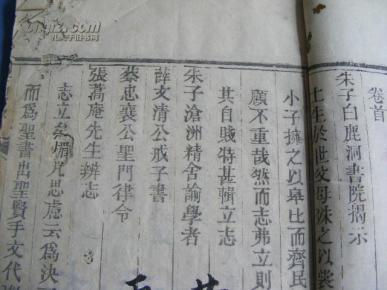 卷首
朱子白鹿洞書院揭示
士生於世父母殊之以裳
小子擁之以皋比而齊民
顧不重哉然而志弗立則
其自賤特甚輯立志
朱子滄洲精舍諭學者
薛文清公戒子書
蔡忠襄公聖門律令
張蒿庵先生辨志
志立矣惟凡思慮云為決
而為聖書出聖賢手文代